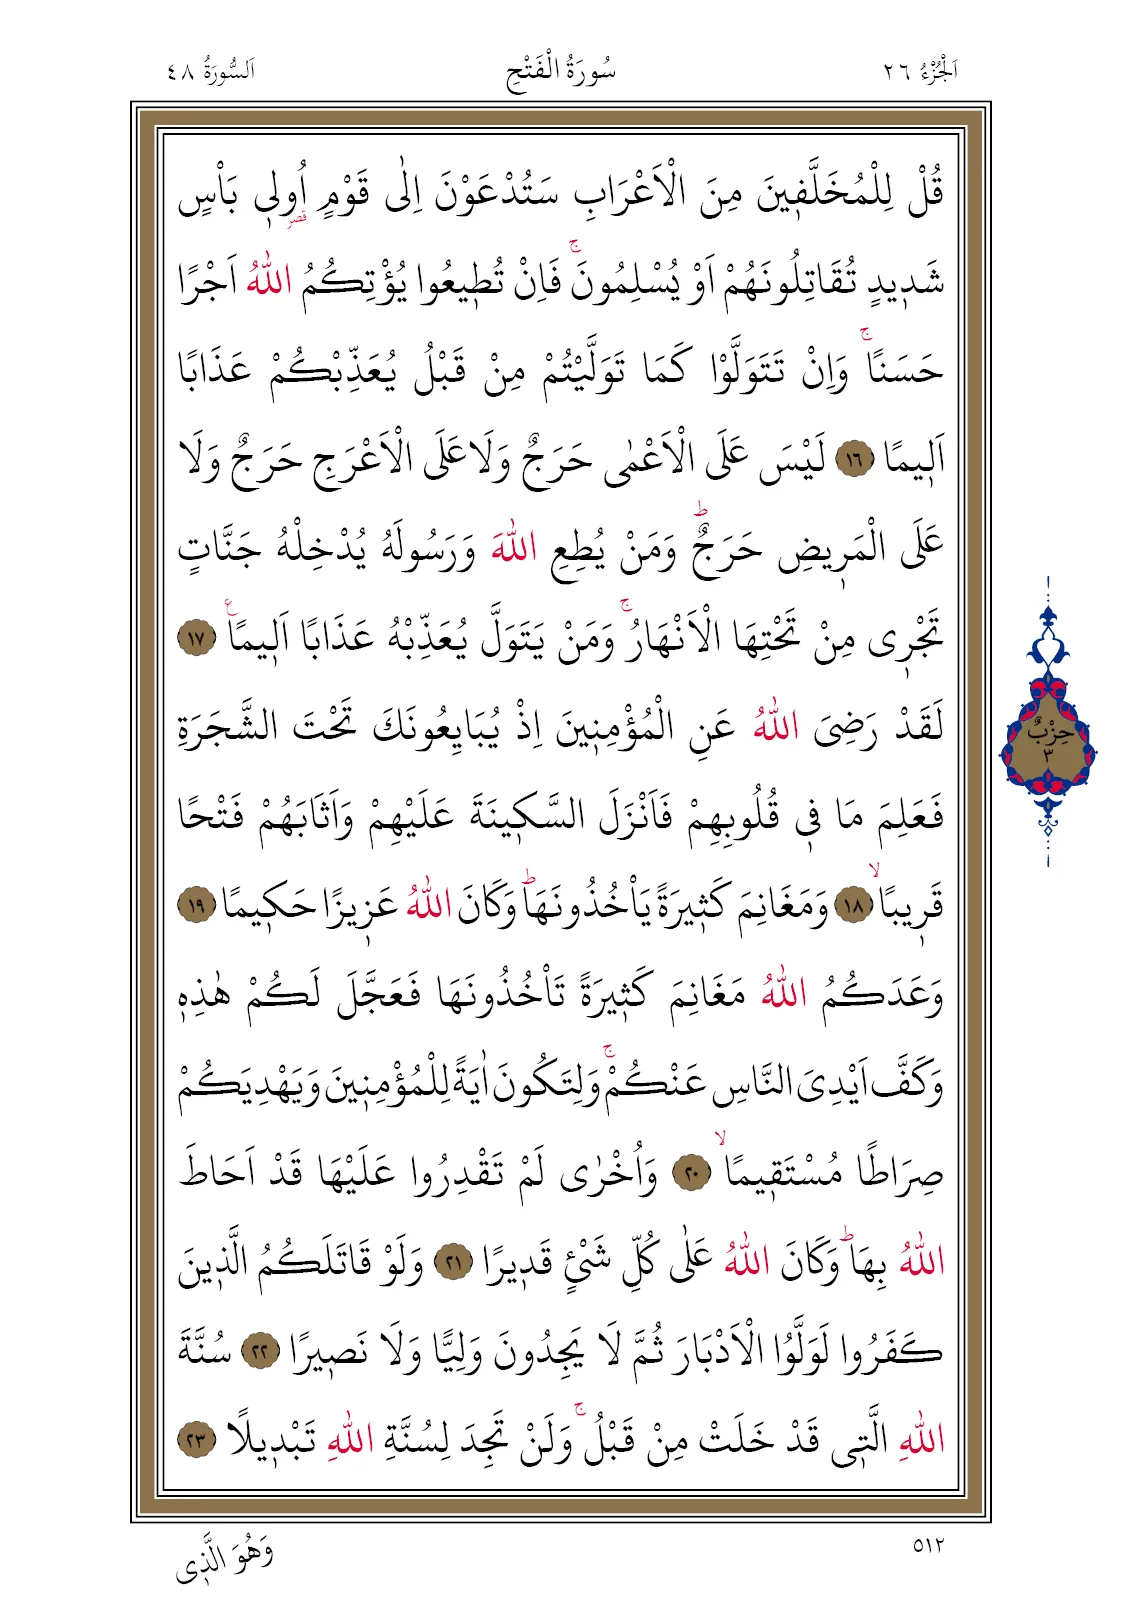 اَلْجُزْءُ ٢٦
سُورَةُ الْفَتْحِ
اَلسُّورَةُ ٤٨
قُلْ لِلْمُخَلَّف۪ينَ مِنَ الْاَعْرَابِ سَتُدْعَوْنَ اِلٰى قَوْمٍ اُو۬ل۪ي بَاْسٍ
قصر
شَد۪يدٍ تُقَاتِلُونَهُمْ اَوْ يُسْلِمُونَۚ فَاِنْ تُط۪يعُوا يُؤْتِكُمُ اللّٰهُ اَجْرًا
حَسَنًاۚ وَاِنْ تَتَوَلَّوْا كَمَا تَوَلَّيْتُمْ مِنْ قَبْلُ يُعَذِّبْكُمْ عَذَابًا
اَل۪يمًا ﴿١٦﴾ لَيْسَ عَلَى الْاَعْمٰى حَرَجٌ وَلَا عَلَى الْاَعْرَجِ حَرَجٌ وَلَا
عَلَى الْمَر۪يضِ حَرَجٌۜ وَمَنْ يُطِعِ اللّٰهَ وَرَسُولَهُ يُدْخِلْهُ جَنَّاتٍ
تَجْر۪ي مِنْ تَحْتِهَا الْاَنْهَارُۚ وَمَنْ يَتَوَلَّ يُعَذِّبْهُ عَذَابًا اَل۪يمًاۚ ع ﴿١٧﴾
لَقَدْ رَضِيَ اللّٰهُ عَنِ الْمُؤْمِن۪ينَ اِذْ يُبَايِعُونَكَ تَحْتَ الشَّجَرَةِ
حِزْبٌ
٣
فَعَلِمَ مَا ف۪ي قُلُوبِهِمْ فَاَنْزَلَ السَّك۪ينَةَ عَلَيْهِمْ وَاَثَابَهُمْ فَتْحًا
قَر۪يبًاۙ ﴿١٨﴾ وَمَغَانِمَ كَث۪يرَةً يَاْخُذُونَهَاۜ وَكَانَ اللّٰهُ عَز۪يزًا حَك۪يمًا ﴿١٩﴾
وَعَدَكُمُ اللّٰهُ مَغَانِمَ كَث۪يرَةً تَاْخُذُونَهَا فَعَجَّلَ لَكُمْ هٰذِه۪
وَكَفَّ اَيْدِيَ النَّاسِ عَنْكُمْۚ وَلِتَكُونَ اٰيَةً لِلْمُؤْمِن۪ينَ وَيَهْدِيَكُمْ
صِرَاطًا مُسْتَق۪يمًاۙ ﴿٢٠﴾ وَاُخْرٰى لَمْ تَقْدِرُوا عَلَيْهَا قَدْ اَحَاطَ
اللّٰهُ بِهَاۜ وَكَانَ اللّٰهُ عَلٰى كُلِّ شَيْءٍ قَد۪يرًا ﴿٢١﴾ وَلَوْ قَاتَلَكُمُ الَّذ۪ينَ
كَفَرُوا لَوَلَّوُا الْاَدْبَارَ ثُمَّ لَا يَجِدُونَ وَلِيًّا وَلَا نَص۪يرًا ﴿٢٢﴾ سُنَّةَ
اللّٰهِ الَّت۪ي قَدْ خَلَتْ مِنْ قَبْلُۚ وَلَنْ تَجِدَ لِسُنَّةِ اللّٰهِ تَبْد۪يلًا ﴿٢٣﴾
٥١٢
وَهُوَ الَّذ۪ي